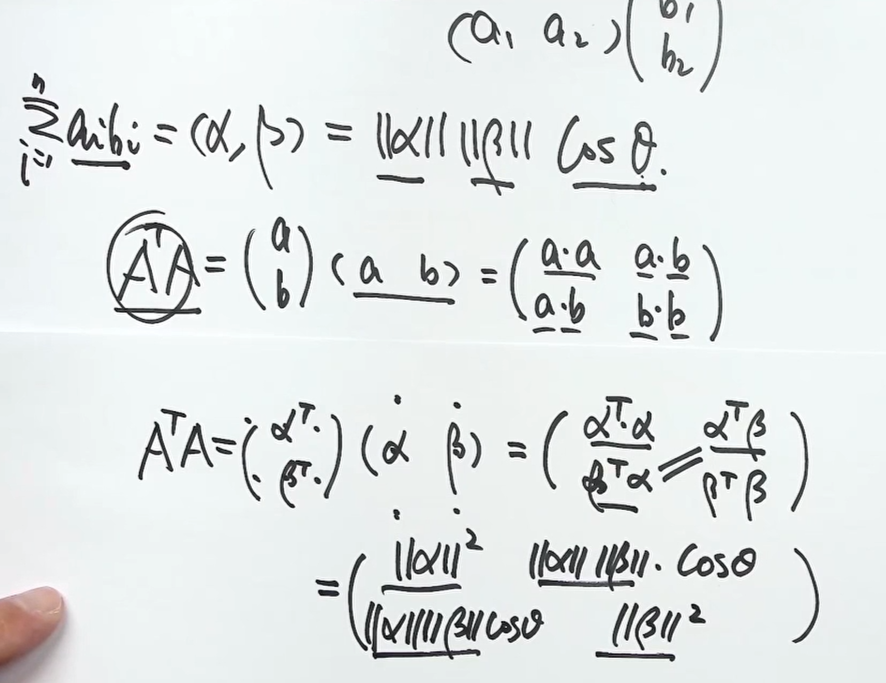 (a₁ a₂)(b₁ b₂)
∑ᵢ₌₁ⁿ aᵢbᵢ = (α, β) = ||α|| ||β|| Cos θ.
AᵀA = (a b) (a b) = (a·a a·b
a·b b·b)
AᵀA = (αᵀ· βᵀ·) (α β) = (αᵀ·α αᵀβ
βᵀα βᵀβ)
= (||α||² ||α|| ||β||· Cosθ
||α|| ||β|| Cosθ ||β||²)